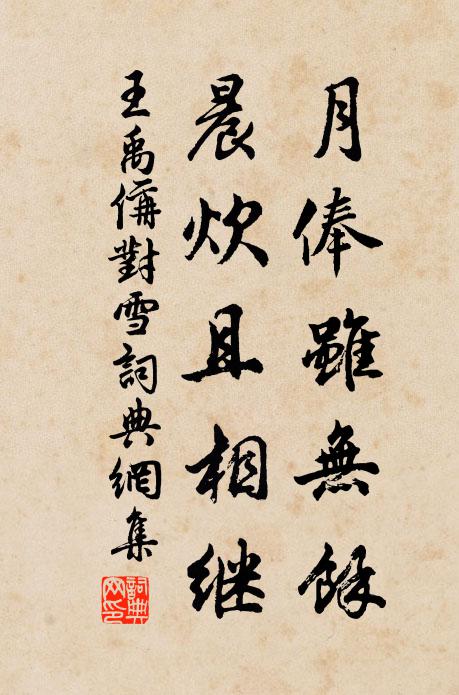 月俸雖無餘
晨炊且相继
王禹偁對雪詞典網集
詞典網印